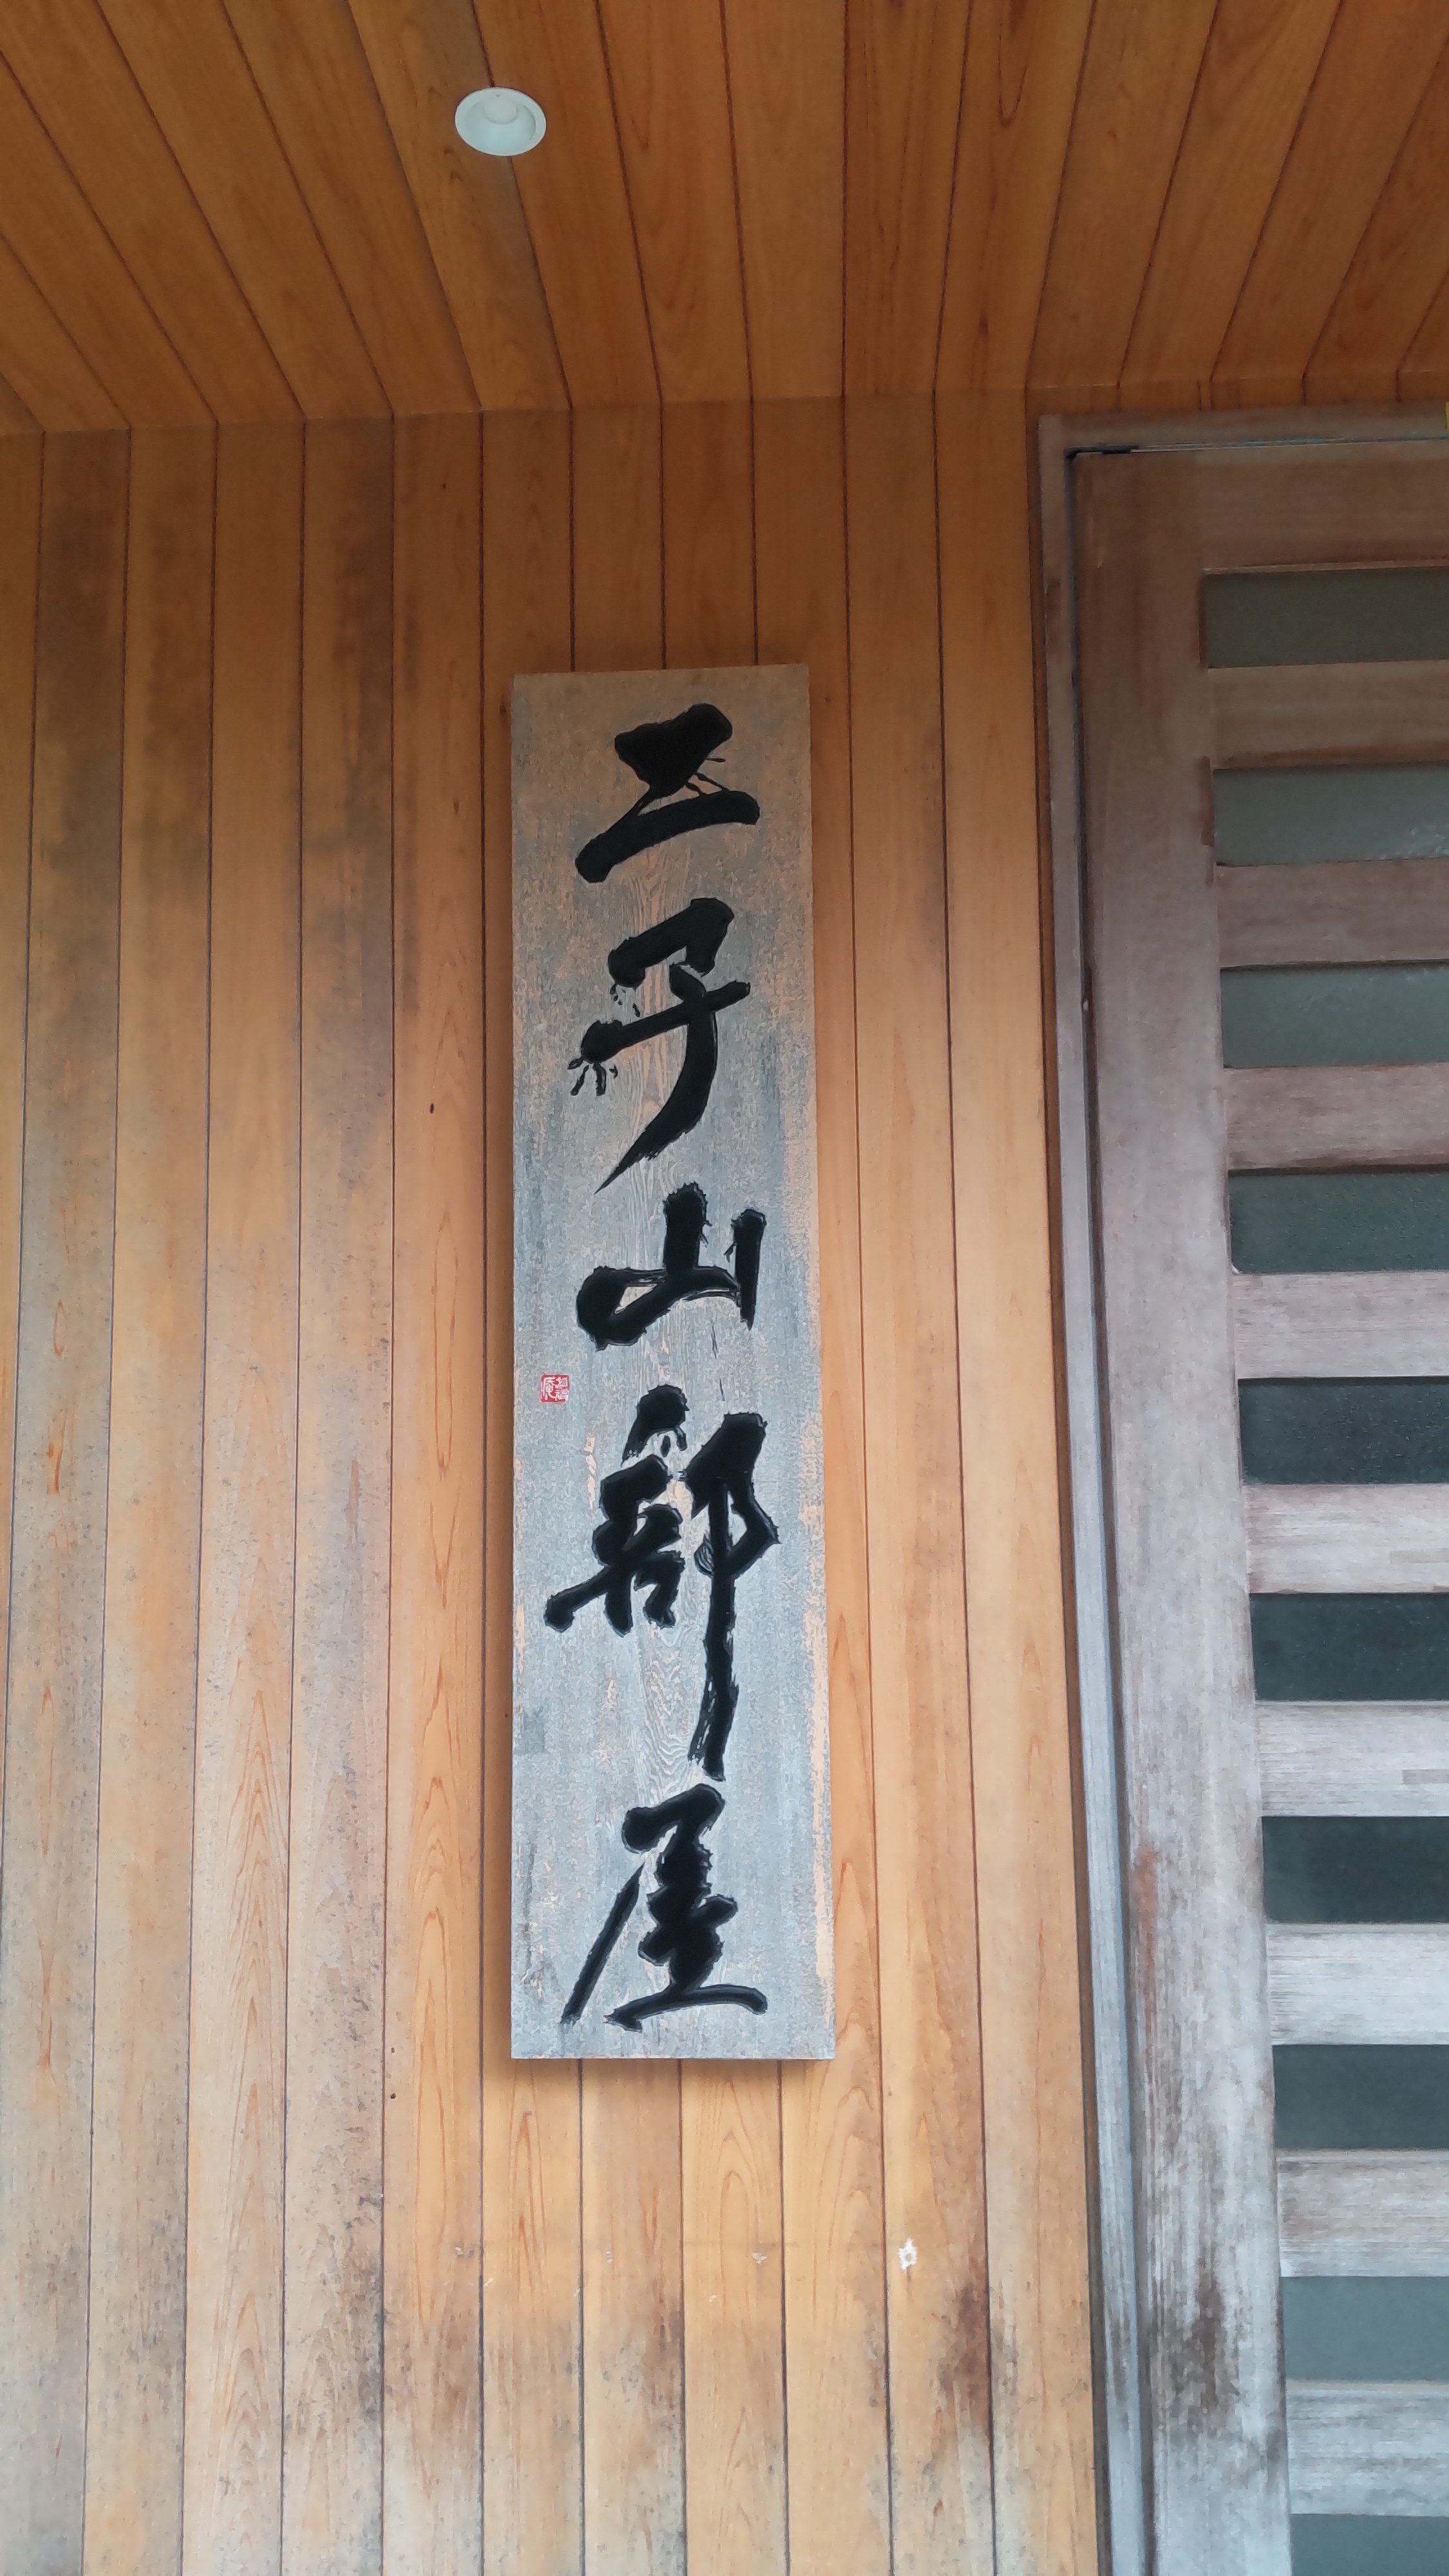 二子山部屋